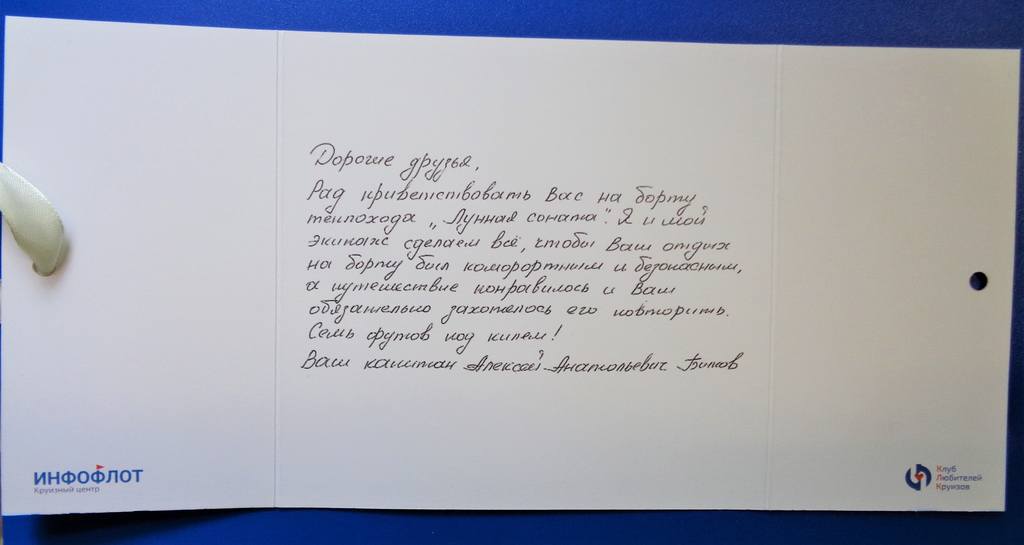 Дорогие друзья,
Рад приветствовать Вас на борту
теплохода „Лунная соната". Я и мой
экипаж сделаем всё, чтобы Ваш отдых
на борту был комфортным и безопасным,
а путешествие понравилось и Вам
обязательно захотелось его повторить.
Семь футов под килем!
Ваш капитан Алексей Анатольевич Битов
ИНФОФЛОТ
Круизный центр
Клуб
Любителей
Круизов